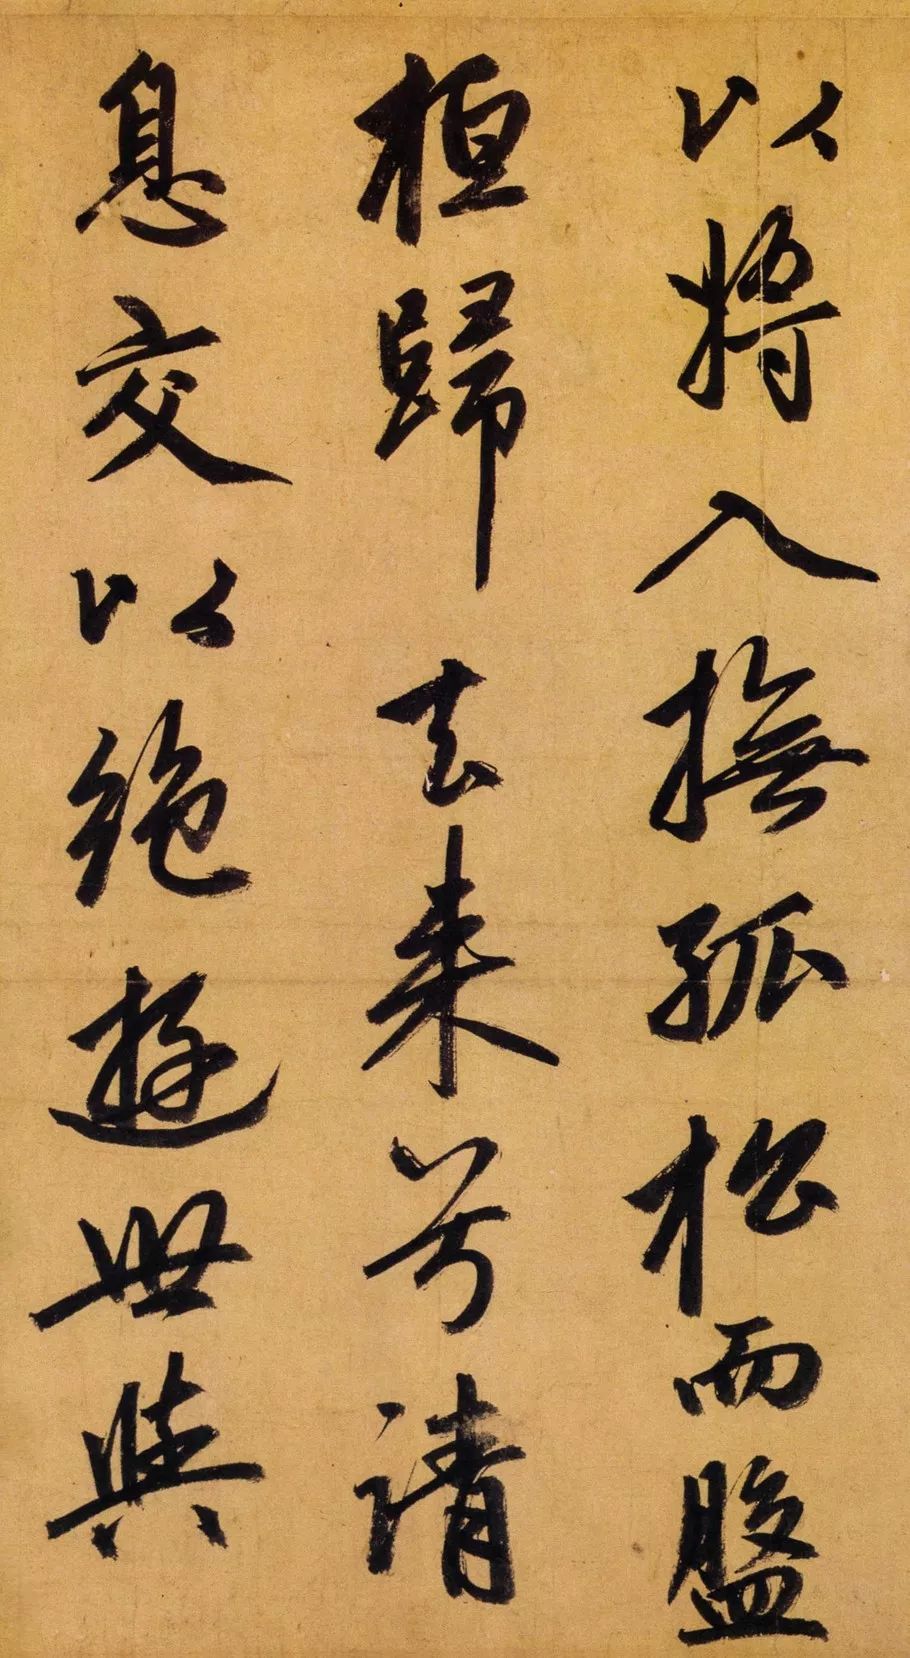 以將入撫孤松而盤
桓歸去来兮請
息交以絶遊世與